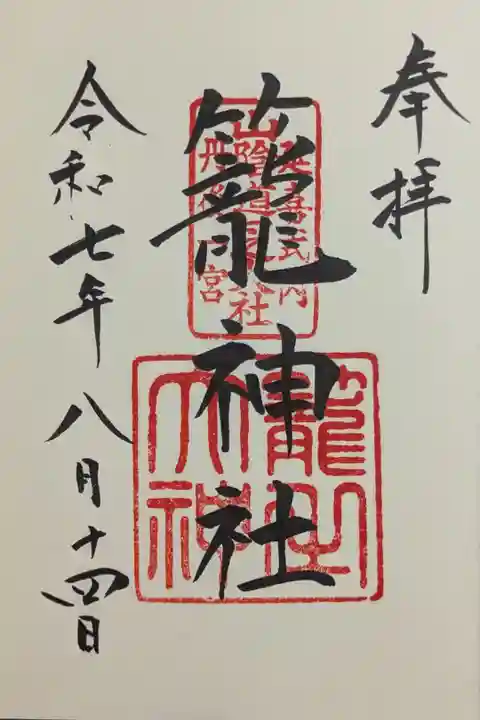 奉拝
籠神社
延喜式内
山陰道
社
丹後一宮
籠之
大神
令和七年八月十四日